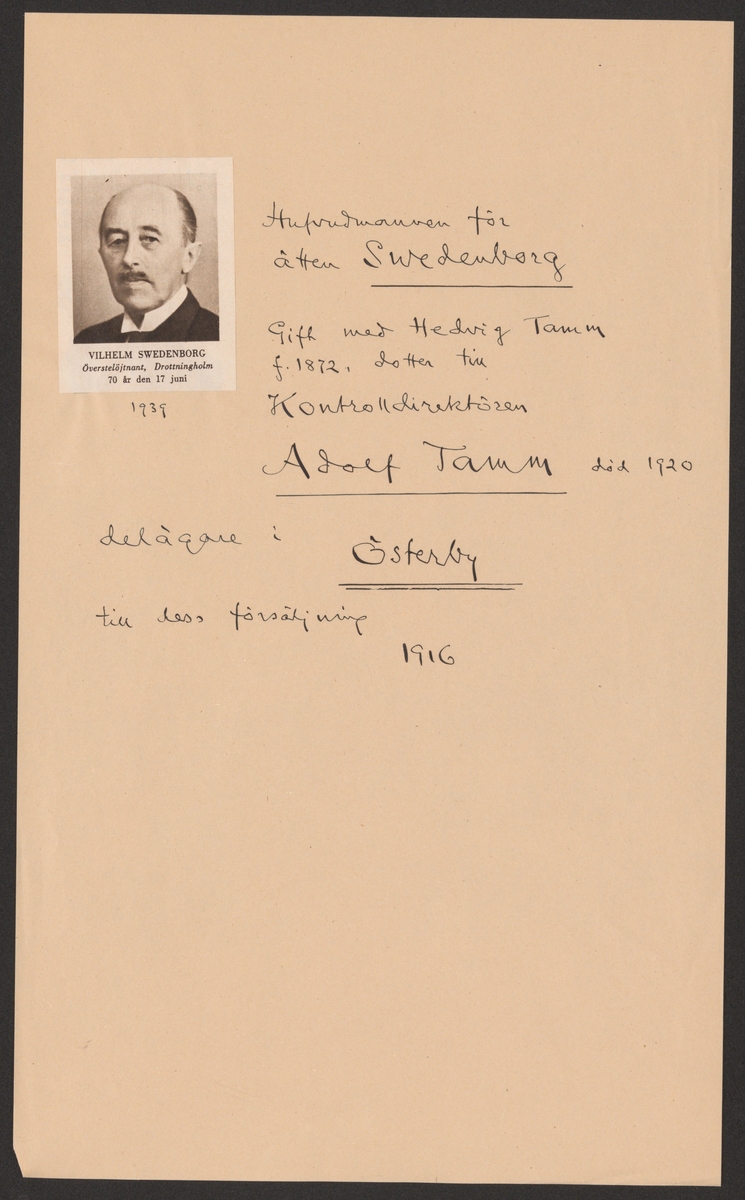 VILHELM SWEDENBORG
Överstelöjtnant, Drottningholm
70 år den 17 juni
1939
Hufvudmannen för
ätten Swedenborg
Gift med Hedvig Tamm
f. 1872, dotter till
Kontrolldirektören
Adolf Tamm död 1920
delägare i Österby
till dess försäljning
1916